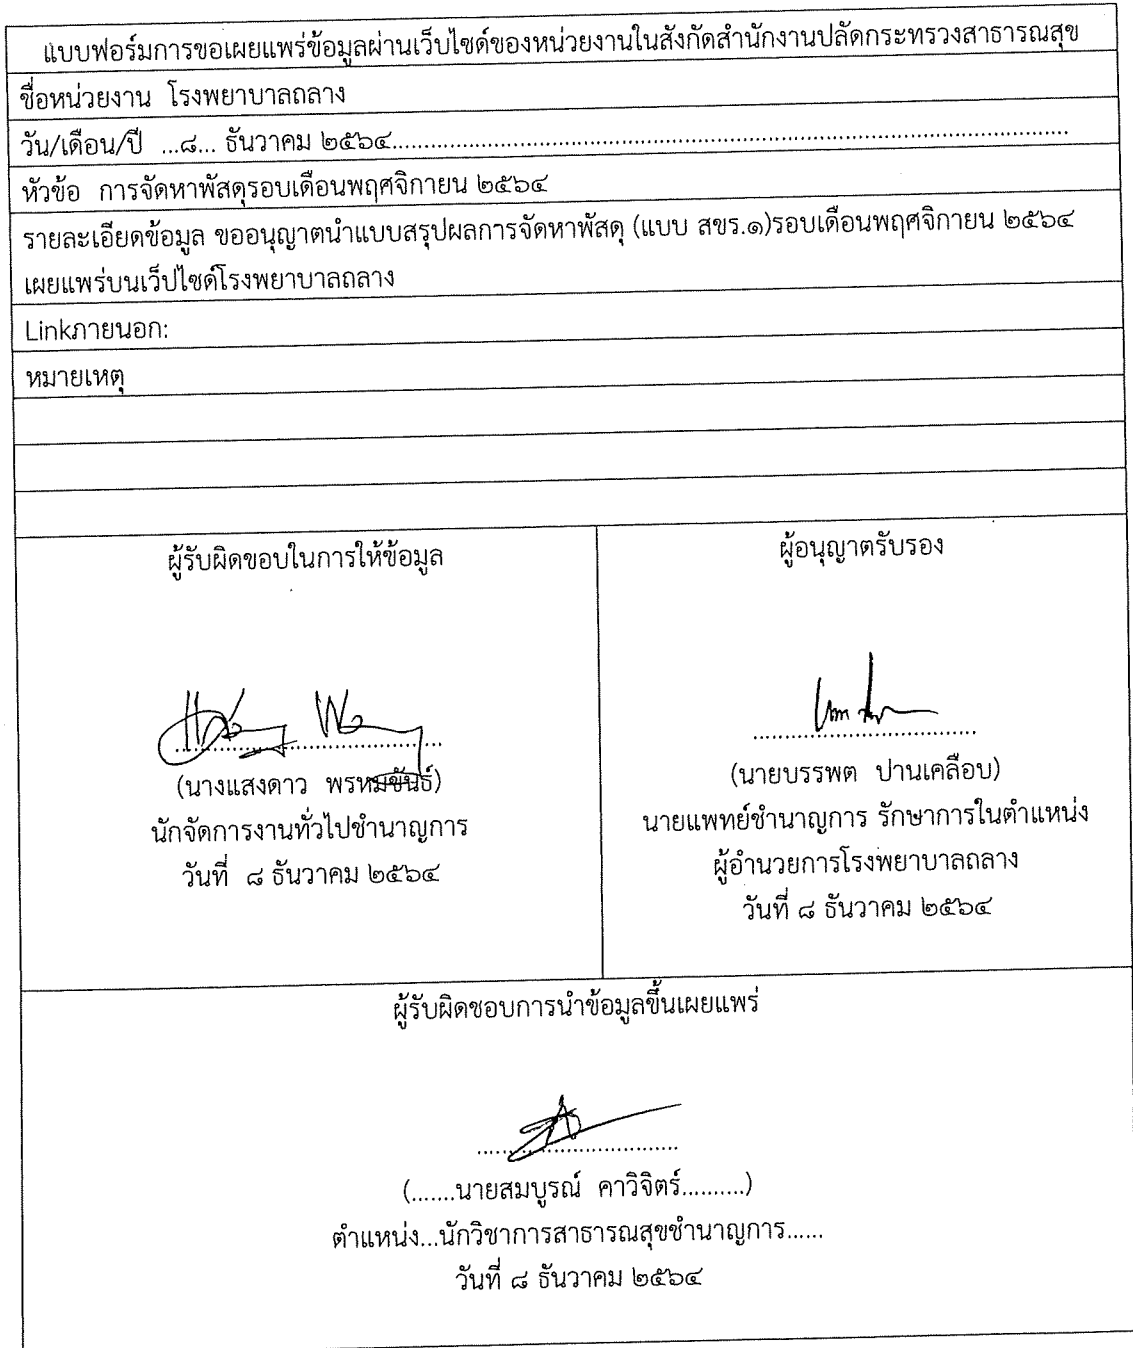 แบบฟอร์มการขอเผยแพร่ข้อมูลผ่านเว็บไซต์ของหน่วยงานในสังกัดสำนักงานปลัดกระทรวงสาธารณสุข
ชื่อหน่วยงาน โรงพยาบาลถลาง
วัน/เดือน/ปี ...๘... ธันวาคม ๒๕๖๔....................................................................................................
หัวข้อ การจัดหาพัสดุรอบเดือนพฤศจิกายน ๒๕๖๔
รายละเอียดข้อมูล ขออนุญาตนำแบบสรุปผลการจัดหาพัสดุ (แบบ สขร.๑)รอบเดือนพฤศจิกายน ๒๕๖๔
เผยแพร่บนเว็บไซต์โรงพยาบาลถลาง
Linkภายนอก:
หมายเหตุ
ผู้รับผิดชอบในการให้ข้อมูล
(นางแสงดาว พรหมขันธ์)
นักจัดการงานทั่วไปชำนาญการ
วันที่ ๘ ธันวาคม ๒๕๖๔
ผู้อนุญาตรับรอง
(นายบรรพต ปานเคลือบ)
นายแพทย์ชำนาญการ รักษาการในตำแหน่ง
ผู้อำนวยการโรงพยาบาลถลาง
วันที่ ๘ ธันวาคม ๒๕๖๔
ผู้รับผิดชอบการนำข้อมูลขึ้นเผยแพร่
(.......นายสมบูรณ์ คาวิจิตร์..........)
ตำแหน่ง...นักวิชาการสาธารณสุขชำนาญการ......
วันที่ ๘ ธันวาคม ๒๕๖๔